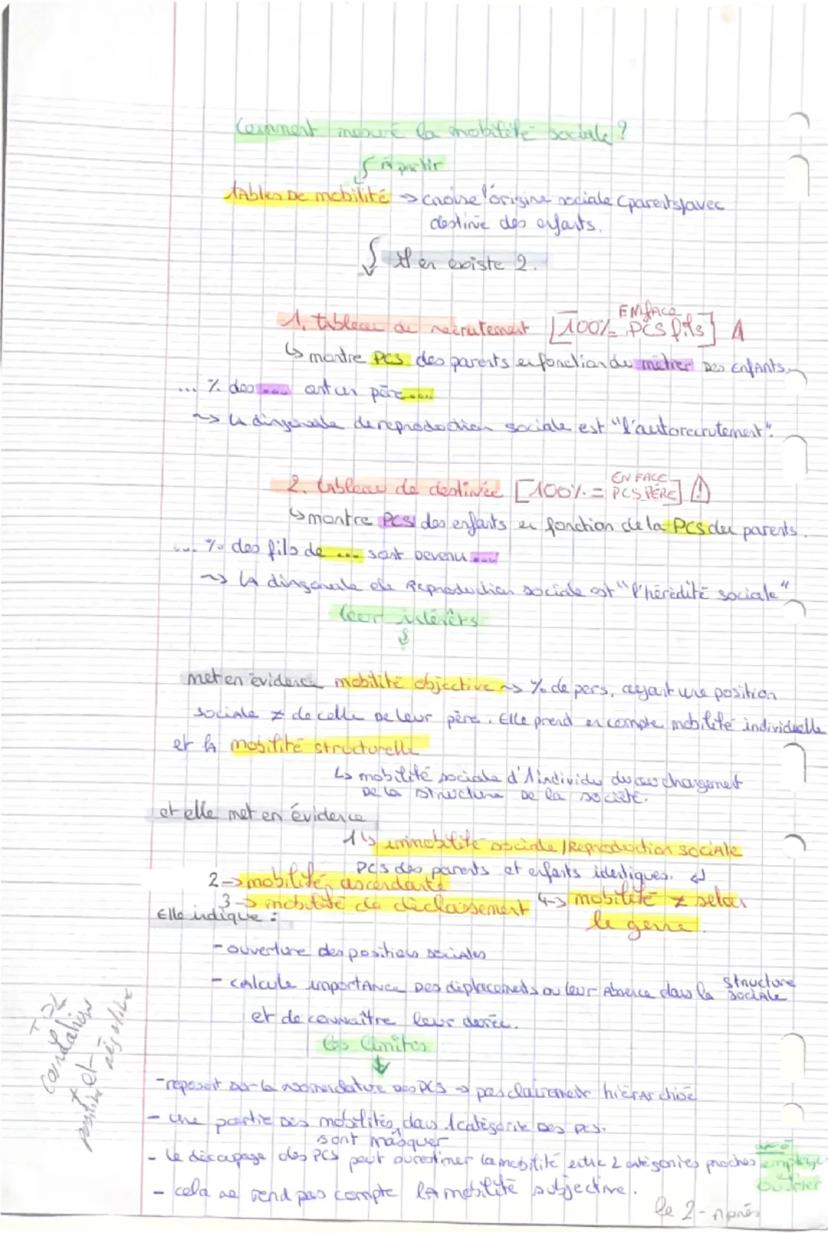 Comment mesuré la mobilité sociale ?
à partir
tables de mobilité → croise l'origine sociale (parents) avec
destinie des enfants.
Il en existe 2.
1. tableau de recrutement [100% = EN face PCS fils] !
↳ montre PCS des parents en fonction du métier des enfants.
... % des .... ont un père ....
~> la diagonale de reproduction sociale est "l'autorecrutement".
2. tableau de destinée [100% = EN FACE PCS PÈRE] !
↳ montre PCS des enfants en fonction de la PCS des parents.
... % des fils de .... sont devenu ....
~> la diagonale de Reproduction sociale est "l'hérédité sociale"
leur intérêts
met en évidence mobilité objective ~> % de pers, ayant une position
sociale ≠ de celle de leur père. Elle prend en compte mobilité individuelle
et la mobilité structurelle
↳ mobilité sociale d'1 individu du au changement
de la structure de la société.
et elle met en évidence
1 ↳ immobilité sociale / Reproduction sociale
PCS des parents et enfants identiques.
2 → mobilité ascendante
3 → mobilité de déclassement 4 → mobilité ≠ selon
le genre.
Elle indique :
- ouverture des positions sociales
- calcule importance des déplacements ou leur absence dans la structure sociale
et de connaître leur
les limites
- reposent sur la nomenclature des PCS → pas clairement hiérarchisé
- une partie des mobilités, dans 1 catégorie des PCS.
sont masquer
- le découpage des PCS peut surestimer la mobilité entre 2 catégories proches employé
ouvrier
- cela ne rend pas compte la mobilité subjective.
le 2 - Après
corrélation
positive et
négative